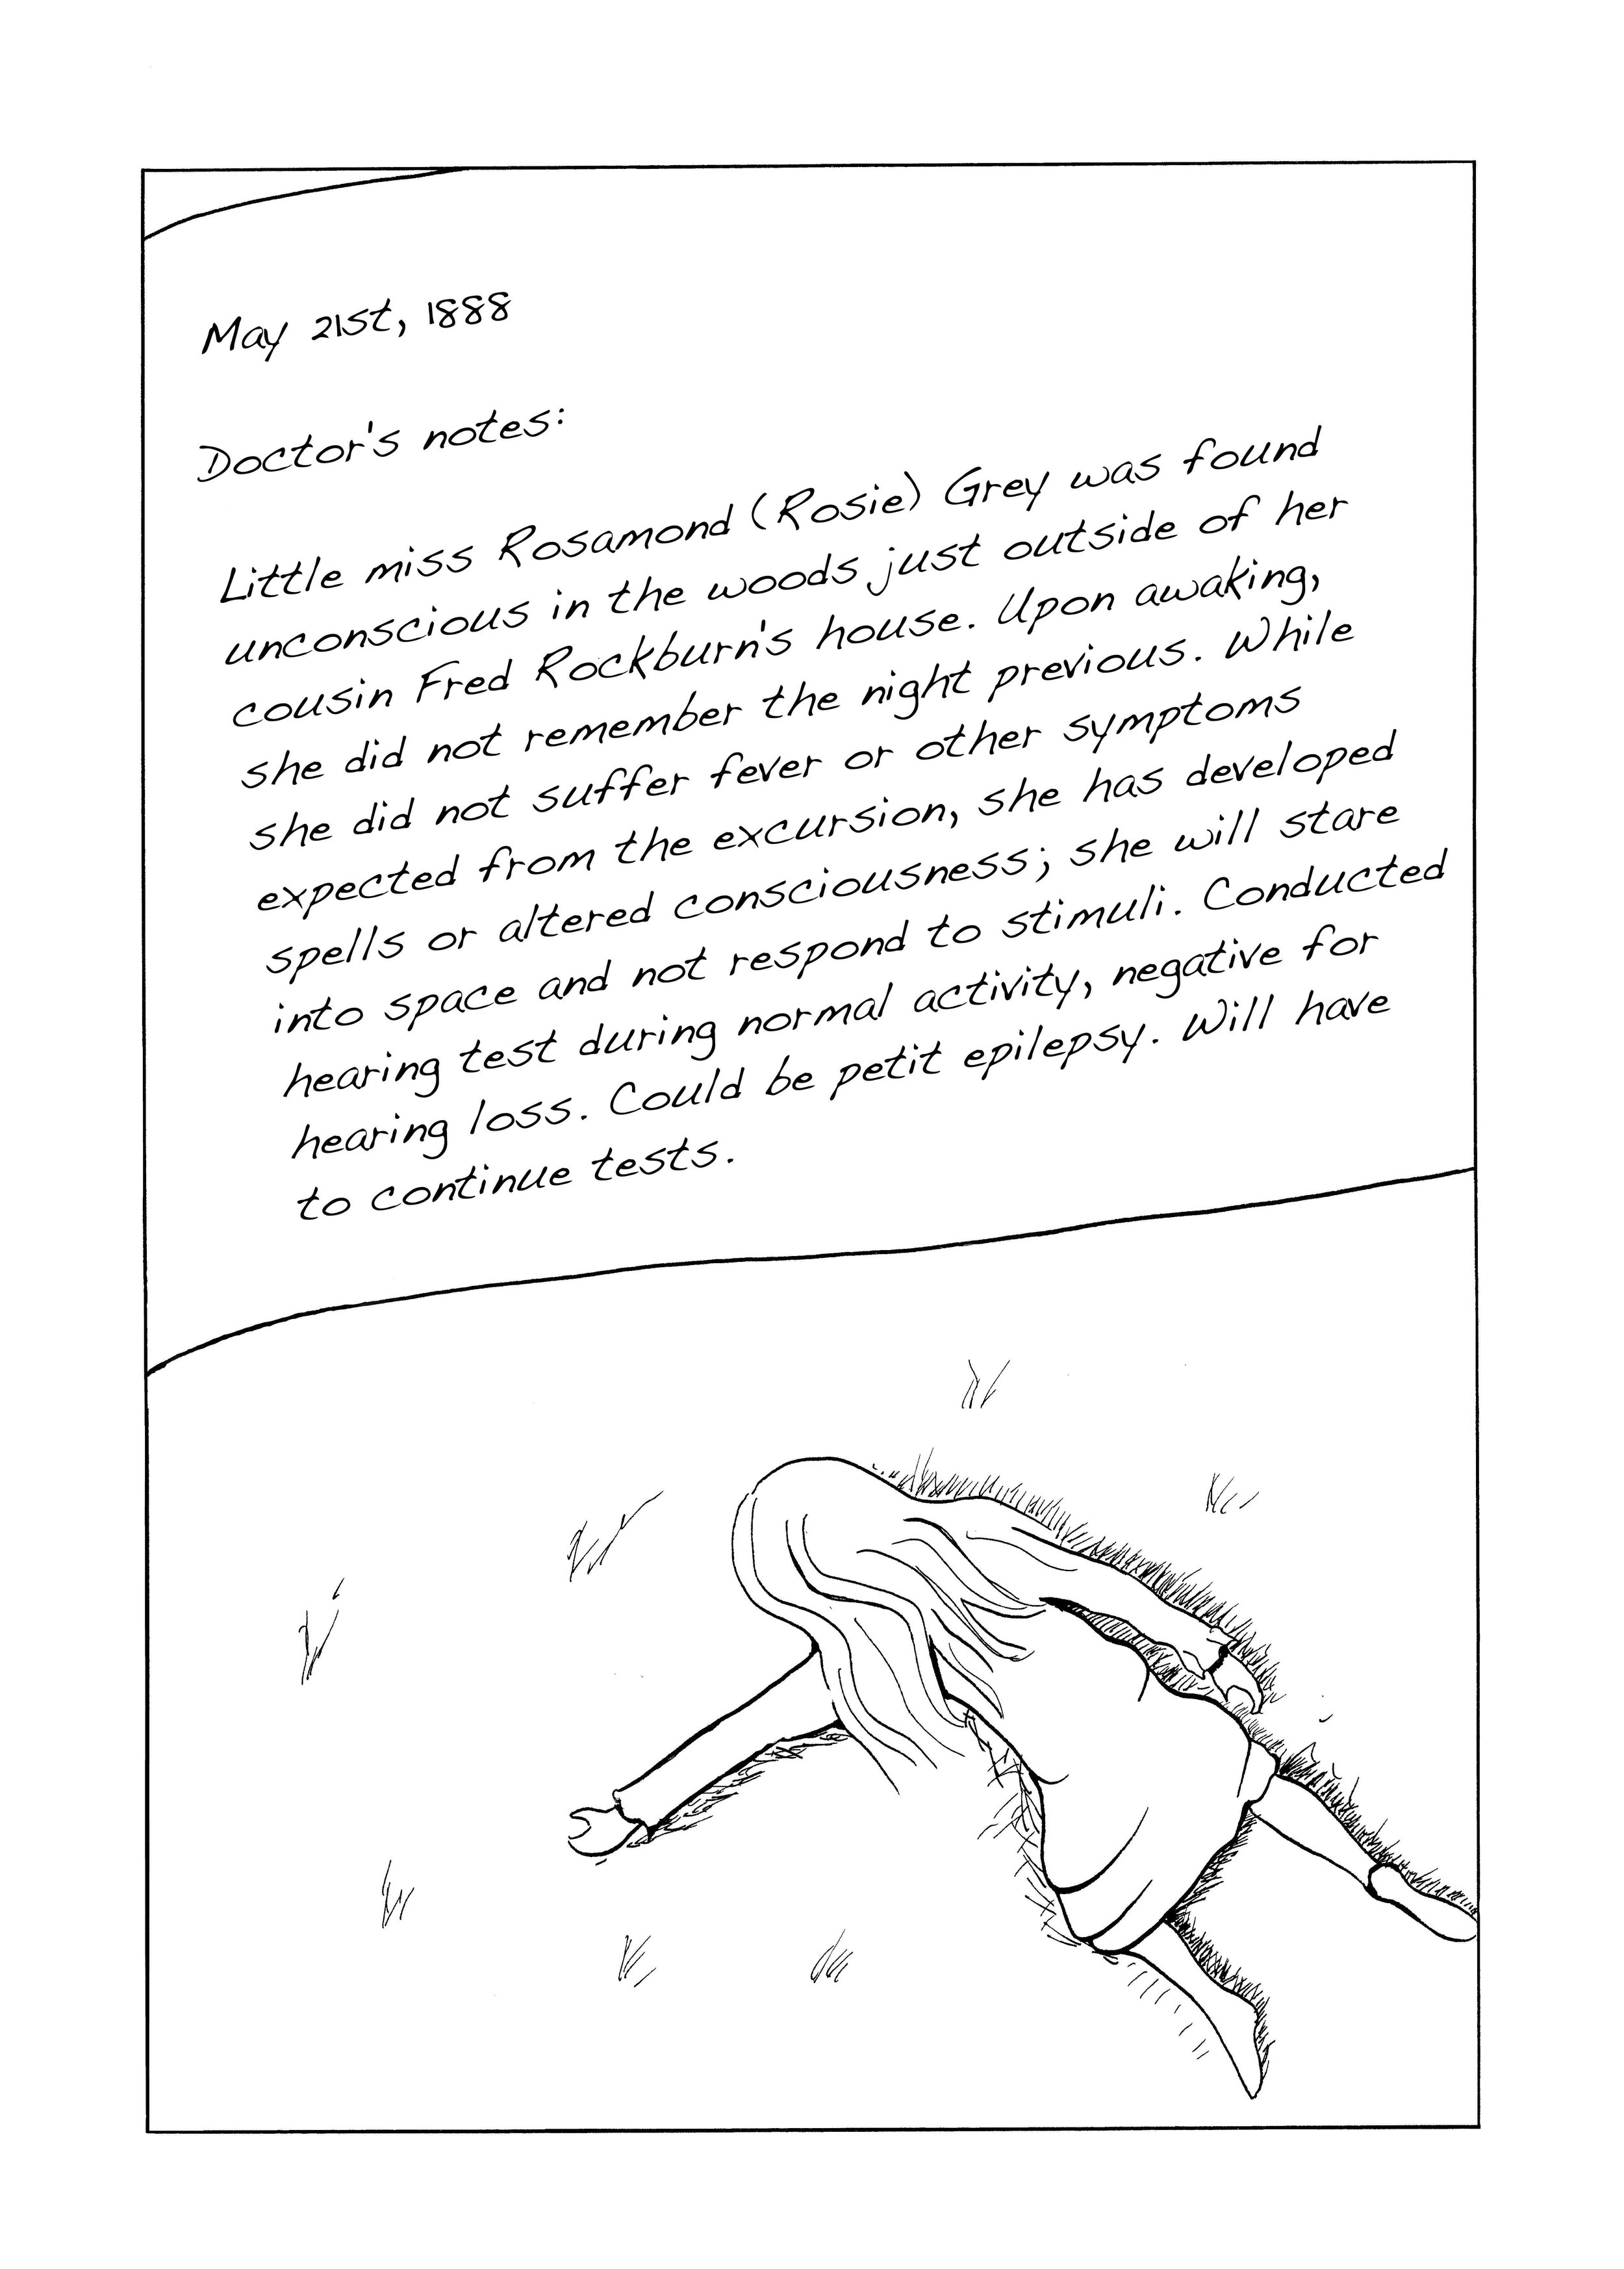 May 21st, 1888
Doctor's notes:
Little miss Rosamond (Rosie) Grey was found
unconscious in the woods just outside of her
cousin Fred Rockburn's house. Upon awaking,
she did not remember the night previous. While
she did not suffer fever or other symptoms
expected from the excursion, she has developed
spells or altered consciousness; she will stare
into space and not respond to stimuli. Conducted
hearing test during normal activity, negative for
hearing loss. Could be petit epilepsy. Will have
to continue tests.